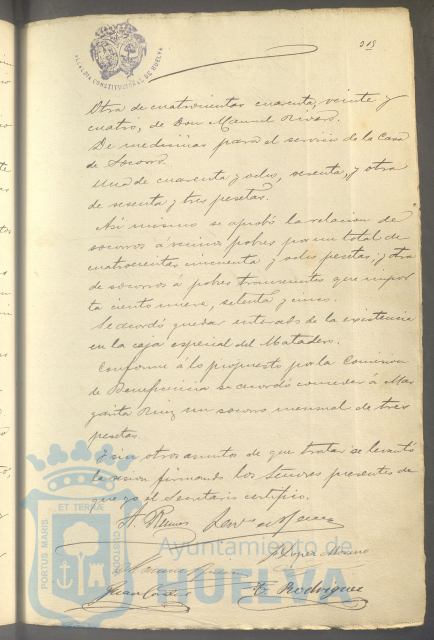 ALCALDIA CONSTITUCIONAL DE HUELVA
Otra de cuatrocientas cuarenta, veinte y
cuatro, de Don Manuel Rivero.
De medicinas para el servicio de la Casa
de Socorro.
Una de cuarenta y ocho, sesenta, y otra
de sesenta y tres pesetas.
Asi mismo se aprobó la relacion de
socorros á vecinos pobres por un total de
cuatrocientas cincuenta y ocho pesetas, y otra
de socorros á pobres transeuntes que impor
ta ciento nueve, setenta y cinco.
Se acordó quedar enterado de la existencia
en la caja especial del Matadero.
Conforme á lo propuesto por la Comision
de Beneficencia se acordó conceder á Mar
garita Ruiz un socorro mensual de tres
pesetas.
Y sin otros asuntos de que tratar se levantó
la sesion firmando los Señores presentes de
que yo el Secretario certifico.
J. Lopez Moreno
E. Rodriguez
PORTUS MARIS ET TERRÆ CUSTODIA
Ayuntamiento de
HUELVA